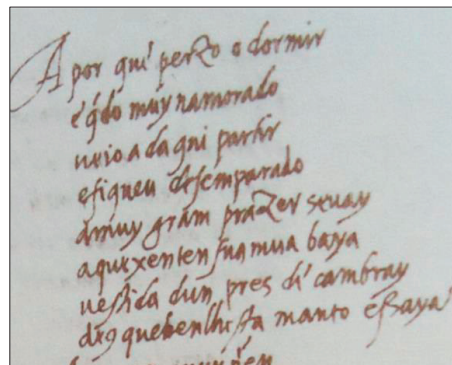 A por quí perzo o dormir
é q̃do múy namorado
ueio a da qui partir
efiqueu desemparado
amuy gram prazer seuay
aquexenten sua mua baya
uestida dun pres di cambray
quebenlhesta manto esaya